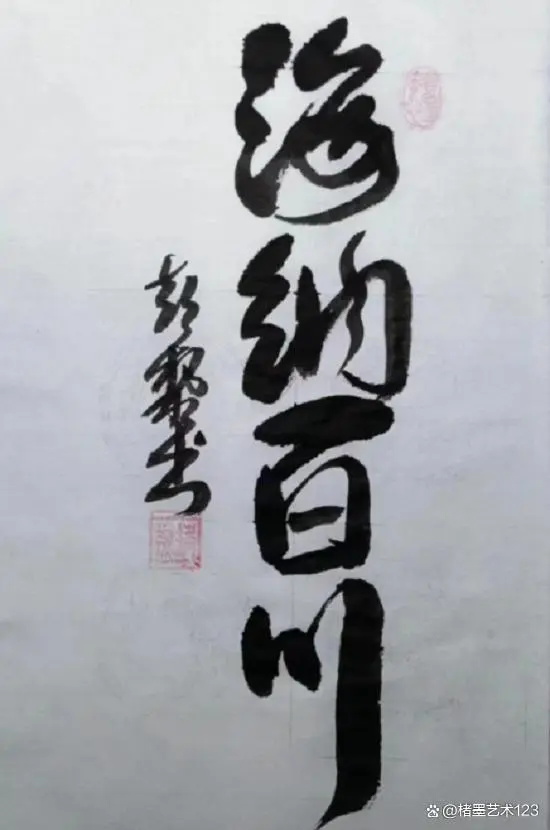 海纳百川
彭黎书
@楮墨艺术123